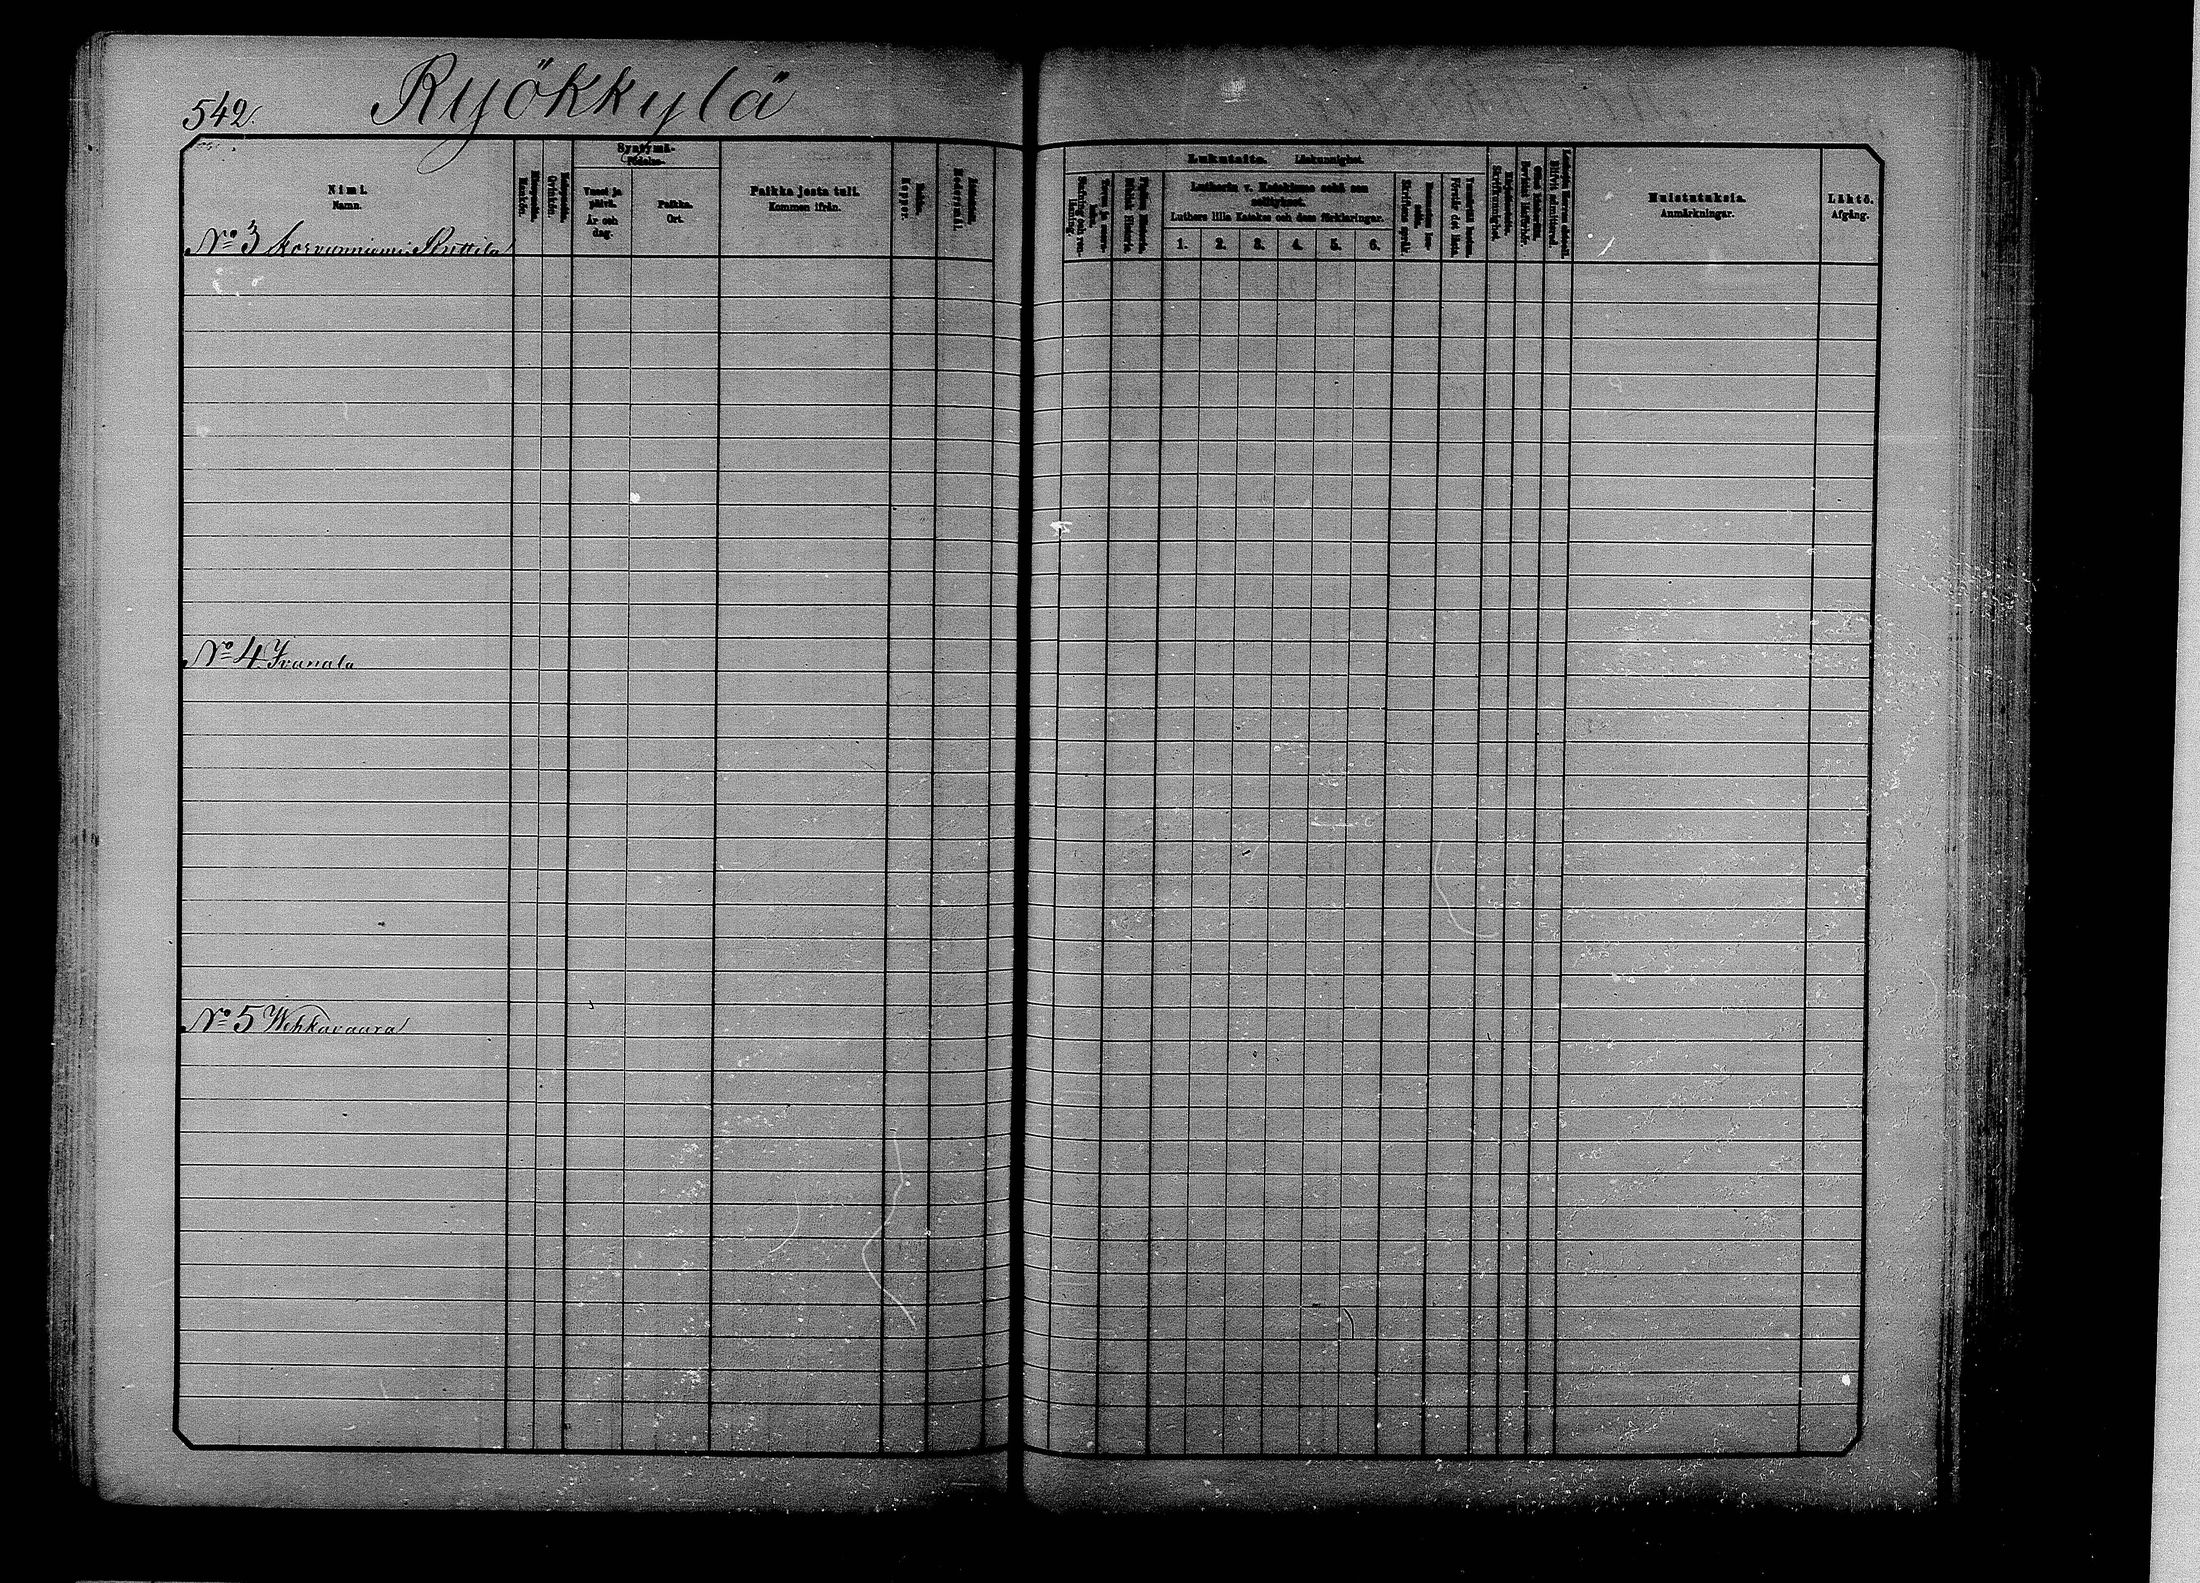 542.
Ryökkylä
Syntymä-
Födelse-
Nimi.
Namn.
Miespuolia.
Mankön.
Vaimopuolia.
Qvinkön.
Vuosi ja
päivä.
År och
dag.
Paikka.
Ort.
Paikka josta tuli.
Kommen ifrån.
Rokko.
Koppor.
No 3 Korvanniemi Ruttila
No 4 Ivanala
No 5 Wehkavaara
Lukutaito. Läskunnighet.
Lutherin v. Katekismus sekä sen
selitykset.
Luthers lilla Katekes och dess förklaringar.
1. 2. 3. 4. 5. 6.
Förstår det lästa.
Muistutuksia.
Anmärkningar.
Lähtö.
Afgång.